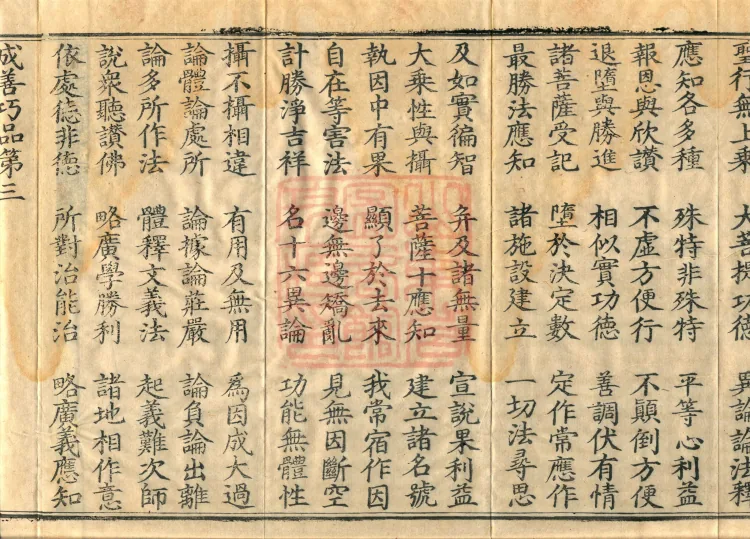 聖行無上乘 大菩提功德 異論論法釋
應知各多種 殊特非殊特 平等心利益
報恩與欣讚 不虛方便行 不顛倒方便
退墮與勝進 相似實功德 善調伏有情
諸菩薩受記 墮於決定數 定作常應作
最勝法應知 諸施設建立 一切法尋思
及如實徧智 并及諸無量 宣說果利益
大乘性與攝 菩薩十應知 建立諸名號
執因中有果 顯了於去來 我常宿作因
自在等害法 邊無邊矯亂 見無因斷空
計勝淨吉祥 名十六異論 功能無體性
攝不攝相違 有用及無用 為因成大過
論體論處所 論據論莊嚴 論負論出離
論多所作法 體釋文義法 起義難次師
說衆聽讚佛 略廣學勝利 諸地相作意
依處德非德 所對治能治 略廣義應知
成善巧品第三